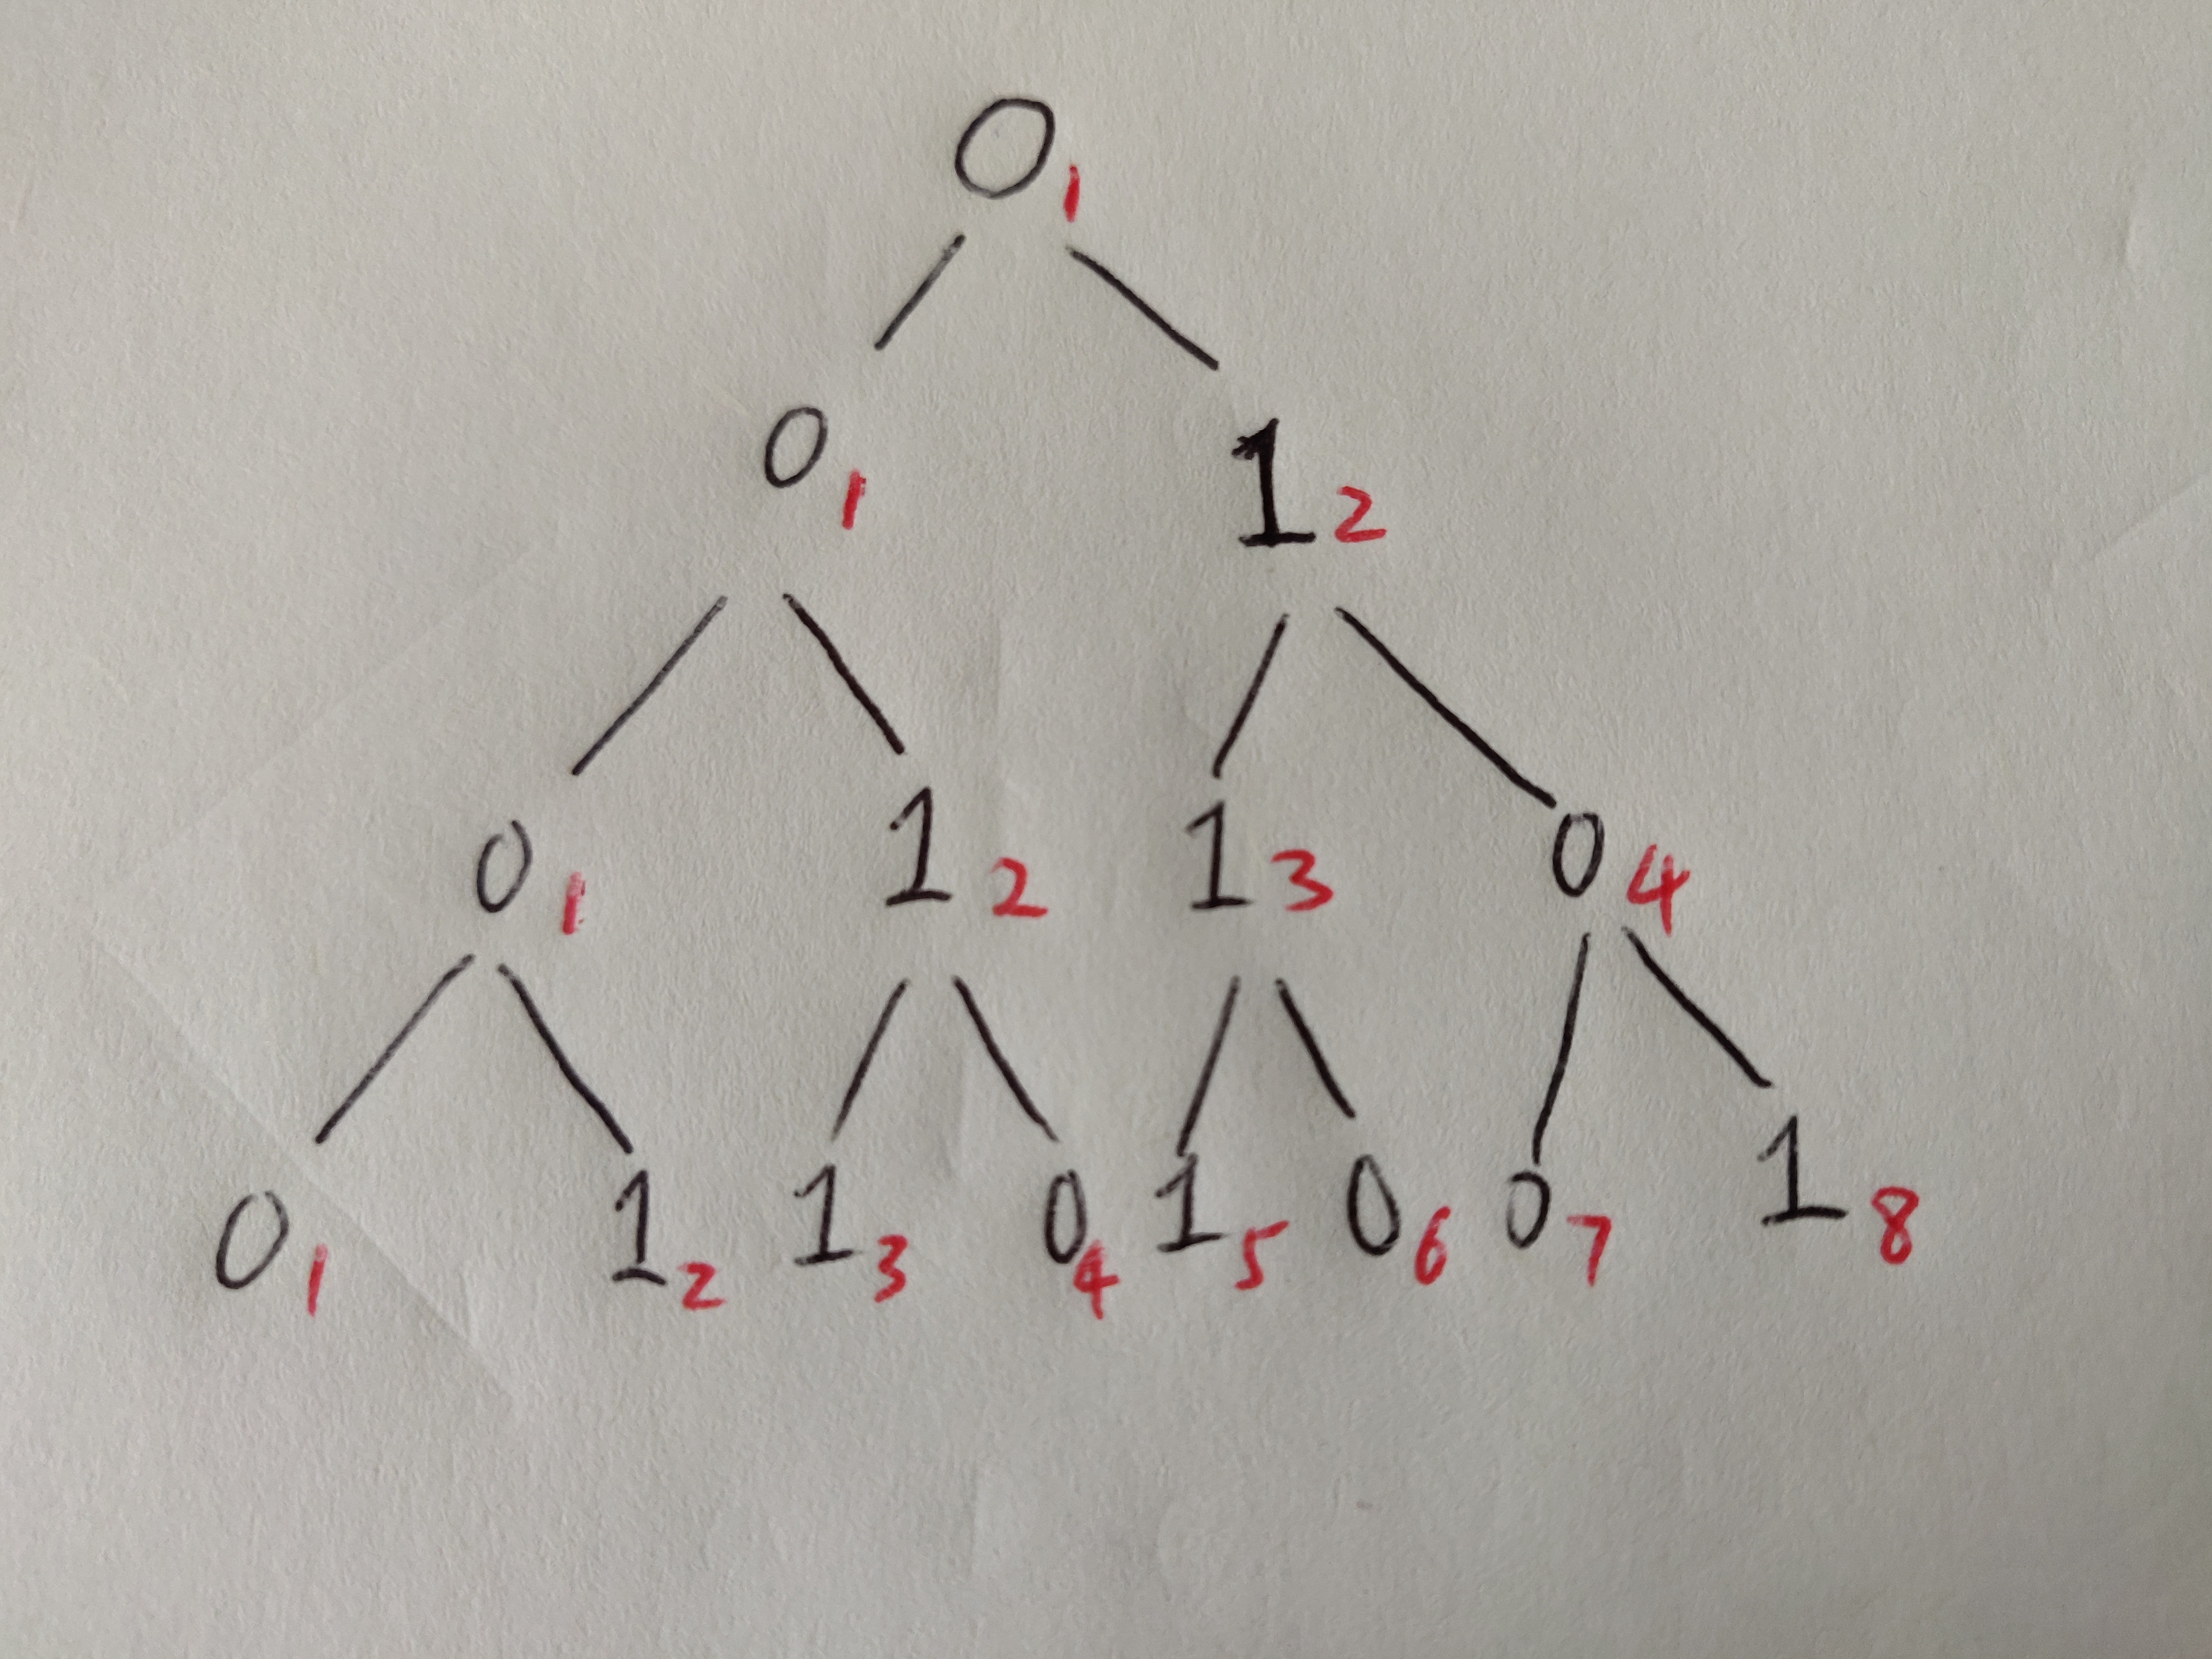 0 1
0 1 1 2
0 1 1 2 1 3 0 4
0 1 1 2 1 3 0 4 1 5 0 6 0 7 1 8